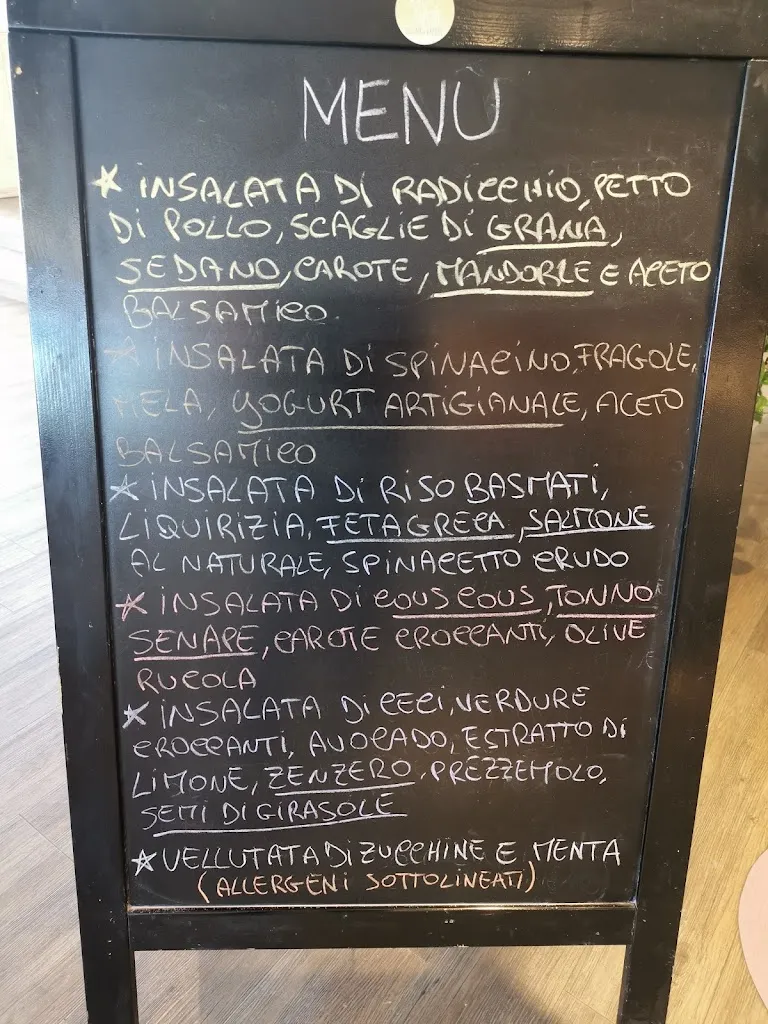 MENÙ
* INSALATA DI RADICCHIO, PETTO
DI POLLO, SCAGLIE DI GRANA,
SEDANO, CAROTE, MANDORLE E ACETO
BALSAMICO.
* INSALATA DI SPINACINO, FRAGOLE,
MELA, YOGURT ARTIGIANALE, ACETO
BALSAMICO
* INSALATA DI RISO BASMATI,
LIQUIRIZIA, FETA GRECA, SALMONE
AL NATURALE, SPINACETTO CRUDO
* INSALATA DI COUS COUS, TONNO
SENAPE, CAROTE CROCCANTI, OLIVE
RUCOLA
* INSALATA DI CECI, VERDURE
CROCCANTI, AVOCADO, ESTRATTO DI
LIMONE, ZENZERO, PREZZEMOLO,
SEMI DI GIRASOLE
* VELLUTATA DI ZUCCHINE E MENTA
(ALLERGENI SOTTOLINEATI)